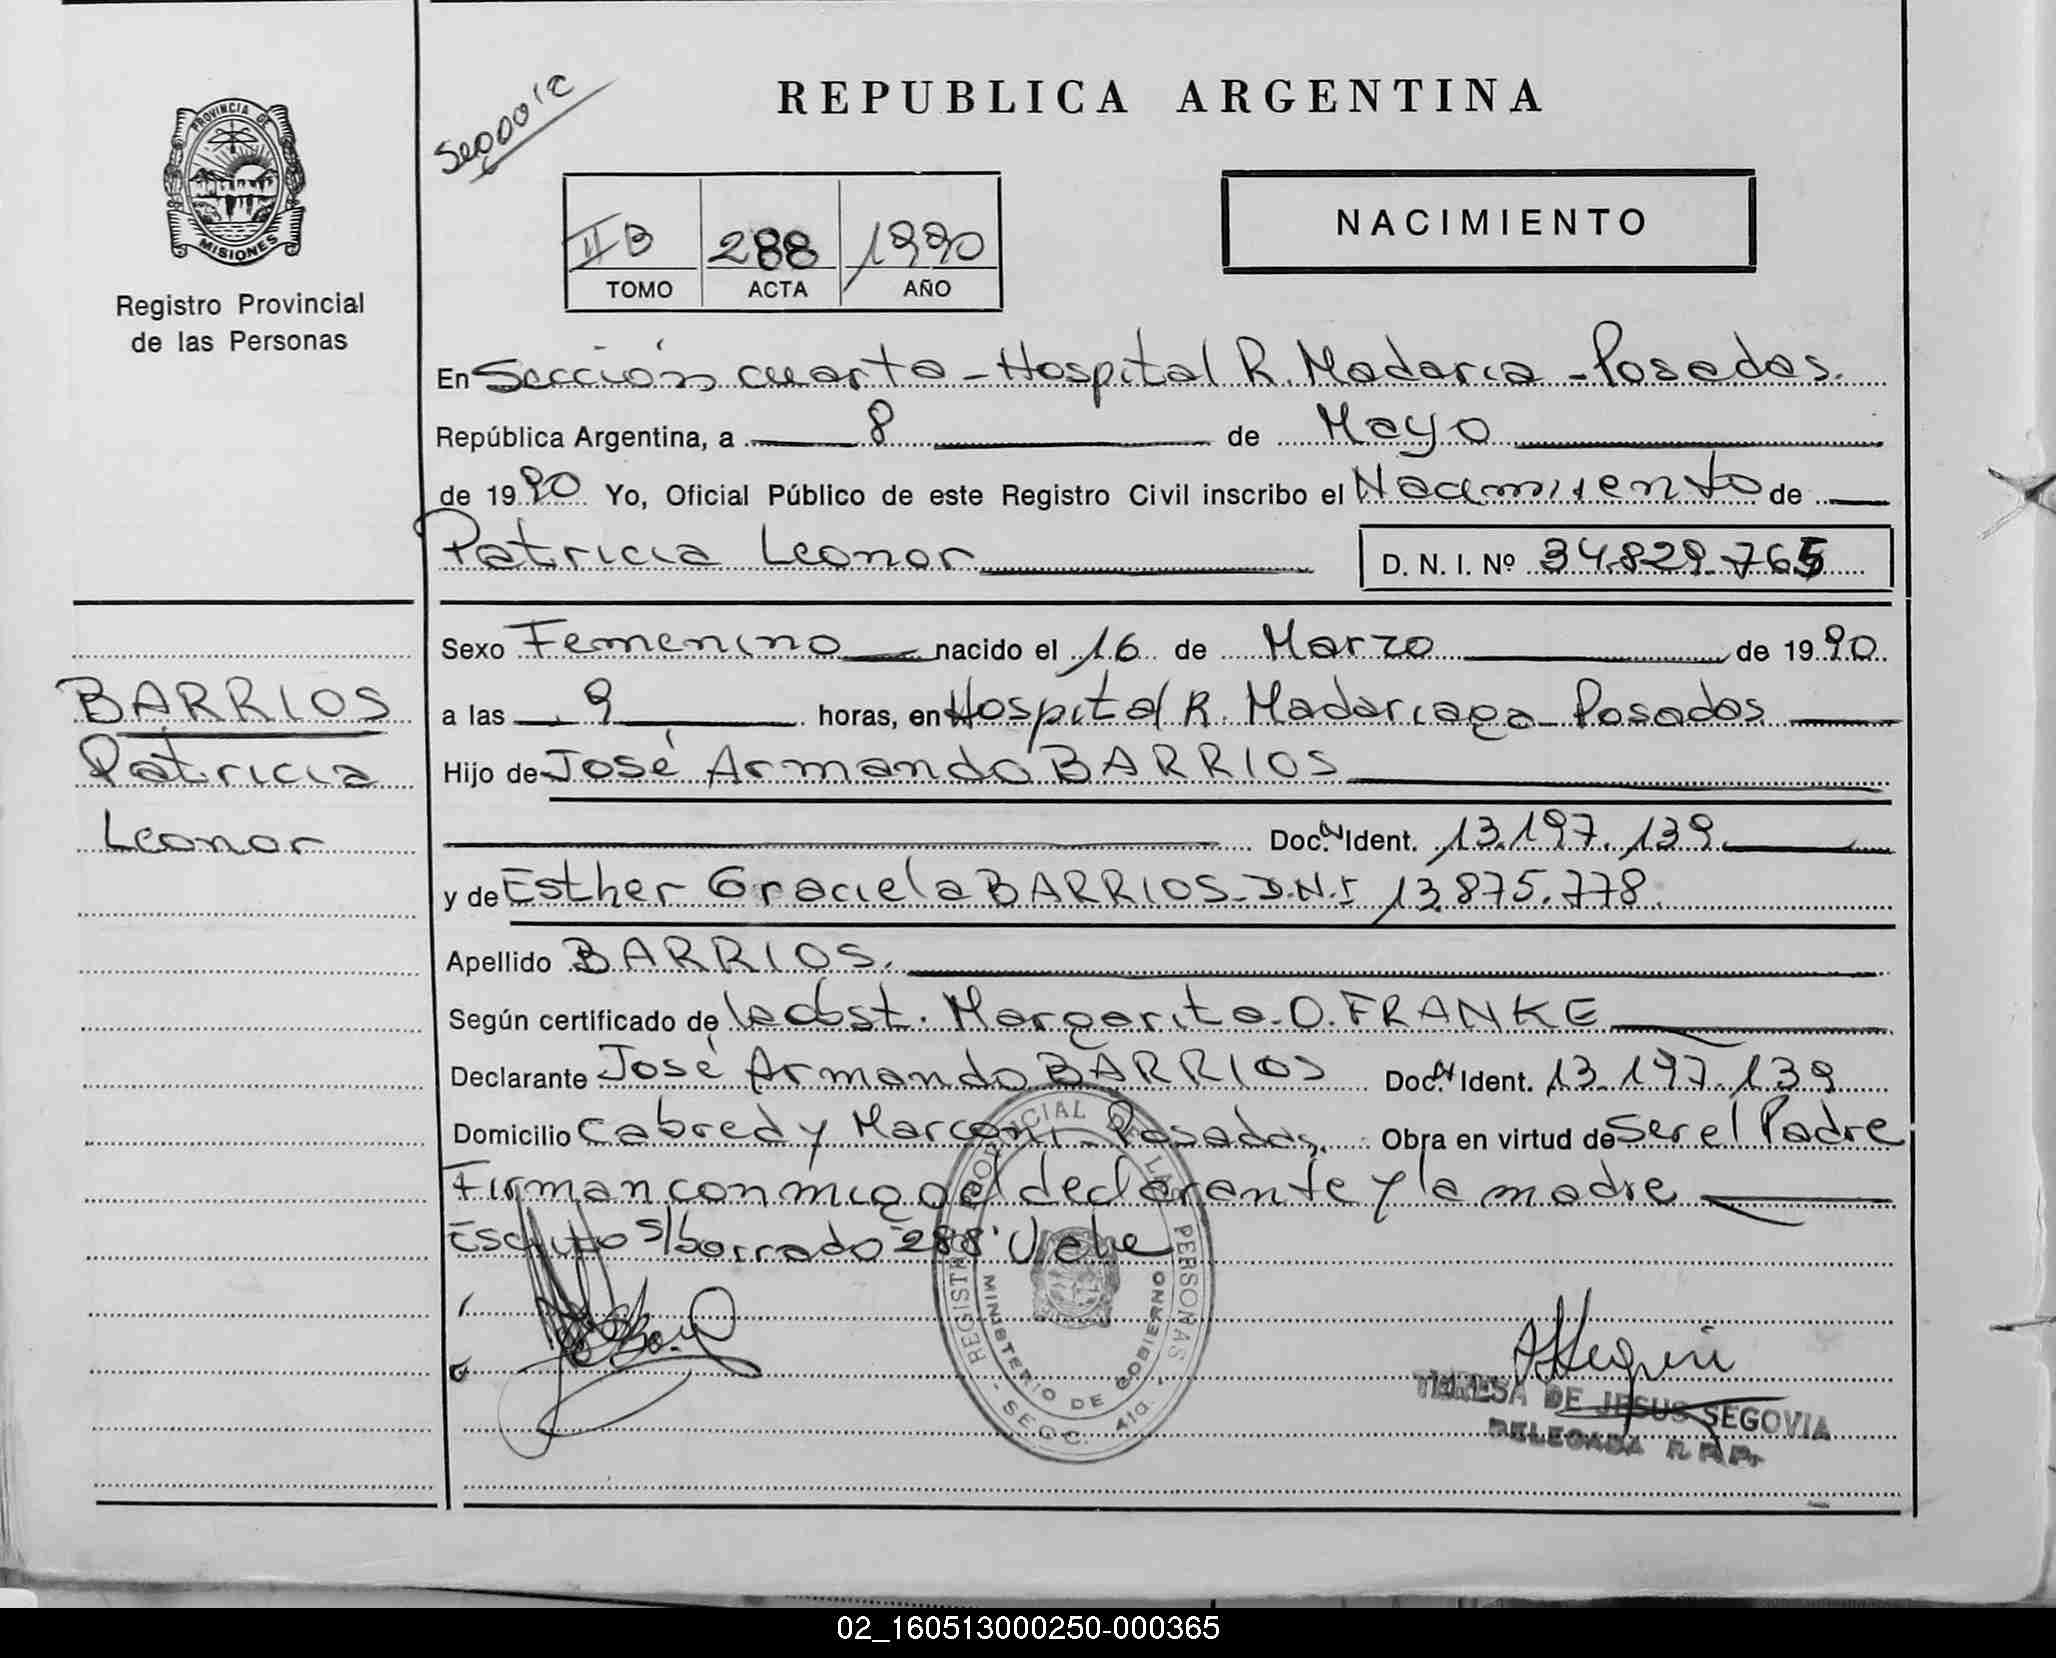 REPUBLICA ARGENTINA
PROVINCIA DE
MISIONES
Registro Provincial
de las Personas
NACIMIENTO
II B 288 1990
TOMO ACTA AÑO
En Sección cuarta - Hospital R. Madaria - Posadas.
República Argentina, a 8 de Mayo
de 1990 Yo, Oficial Público de este Registro Civil inscribo el Nacimiento de
Patricia Leonor D. N. I. Nº 34.829.765
Sexo Femenino nacido el 16 de Marzo de 1990
BARRIOS
Patricia
Leonor
a las 9 horas, en Hospital R. Madariaga - Posadas
Hijo de José Armando BARRIOS
Doc. N Ident. 13.197.139
y de Esther Graciela BARRIOS - D.N.I 13.875.778.
Apellido BARRIOS.
Según certificado de la obst. Margarita O. FRANKE
Declarante José Armando BARRIOS Doc. N Ident. 13.197.139
Domicilio Cabred y Marconi - Posadas. Obra en virtud de Ser el Padre
Firman conmigo el declarante y la madre
Escrito s/borrado "288" Vale
REGISTRO PROVINCIAL DE LAS PERSONAS
MINISTERIO DE GOBIERNO
- SECC. 4ta. -
TERESA DE JESUS SEGOVIA
DELEGADA R. P. P.
02_160513000250-000365